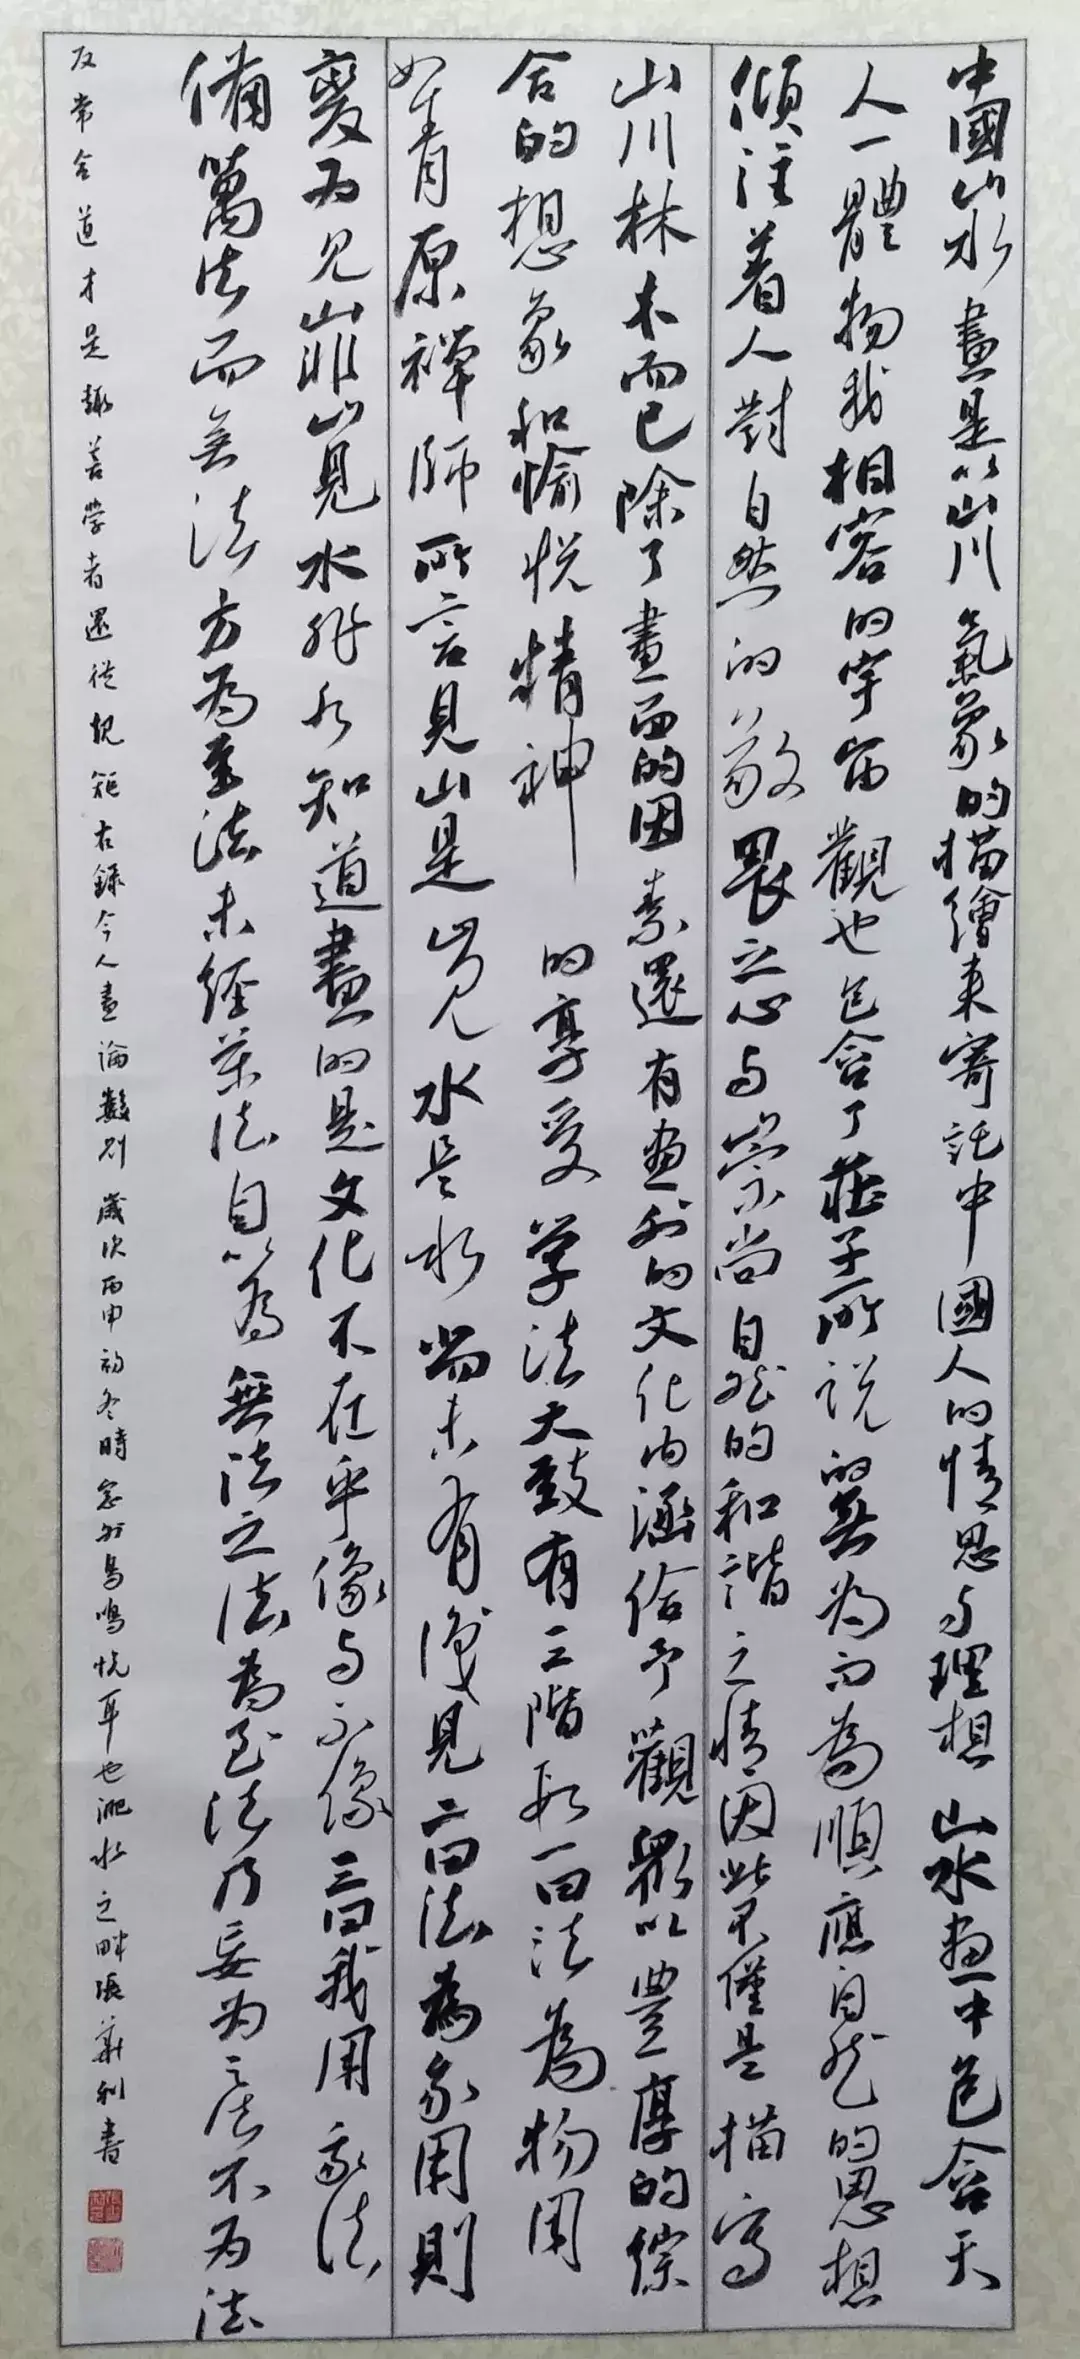 中國山水畫是以山川氣象的描繪來寄託中國人的情思与理想山水畫中包含天
人一體物我相容的宇宙觀也包含了莊子所説的無為而為順應自然的思想
傾注着人對自然的敬畏之心与崇尚自然的和諧之情因此不僅是描寫
山川林木而已除了畫面的因素還有畫外的文化内涵给予觀衆以豐厚的綜
合的想象和愉悦精神的享受学法大致有三階段一曰法為物用
如青原禅師所言見山是山見水是水尚未有浅見二曰法為象用則
變为見山非山見水非水知道畫的是文化不在乎像与不像三曰我用我法
備萬法而無法方為至法未經萊法自以為無法之法為至法乃妄为之法不为法
反常合道才是趣善學者還從規矩右錄今人畫論數則歲次丙申初冬時窓外鳥鳴悦耳也淝水之畔張華利書